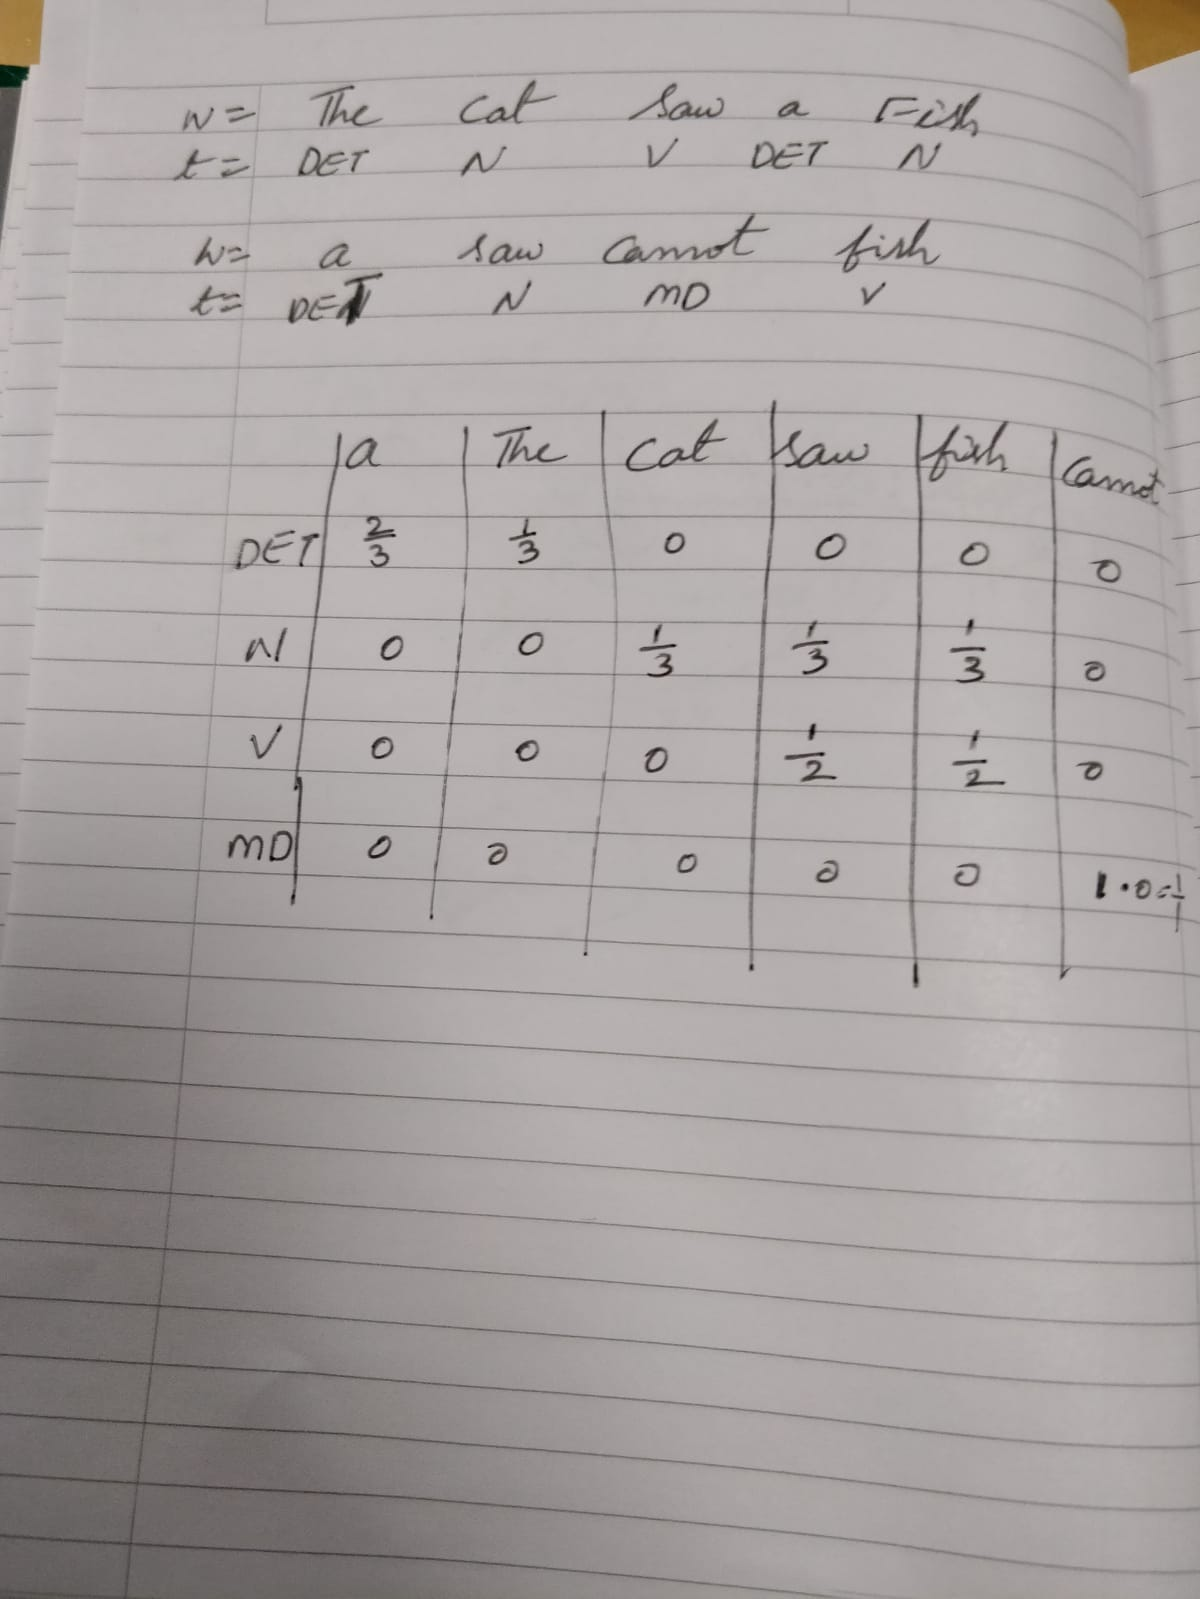 w= The Cat Saw a Fish
t= DET N V DET N
w= a saw Cannot fish
t= DET N MD V
a The Cat Saw fish Cannot
DET 2/3 1/3 0 0 0 0
N 0 0 1/3 1/3 1/3 0
V 0 0 0 1/2 1/2 0
MD 0 0 0 0 0 1.0=1/1